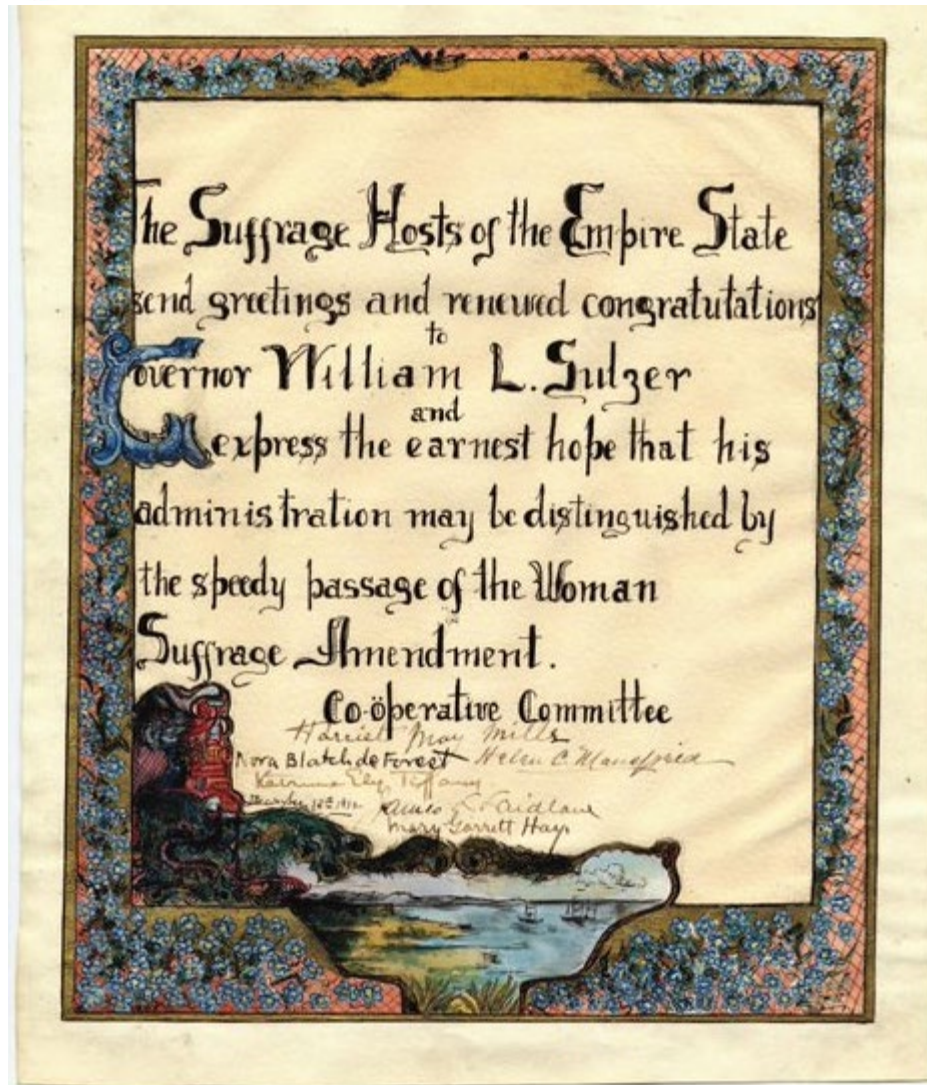 The Suffrage Hosts of the Empire State
send greetings and renewed congratutations
to
Governor William L. Sulzer
and
express the earnest hope that his
administration may be distinguished by
the speedy passage of the Woman
Suffrage Amendment.
Co-öperative Committee
Harriet May Mills
Nora Blatch de Forest Helen C. Mansfield
Katrina Ely Tiffany
December 1912 James L. Laidlaw
Mary Garrett Hay